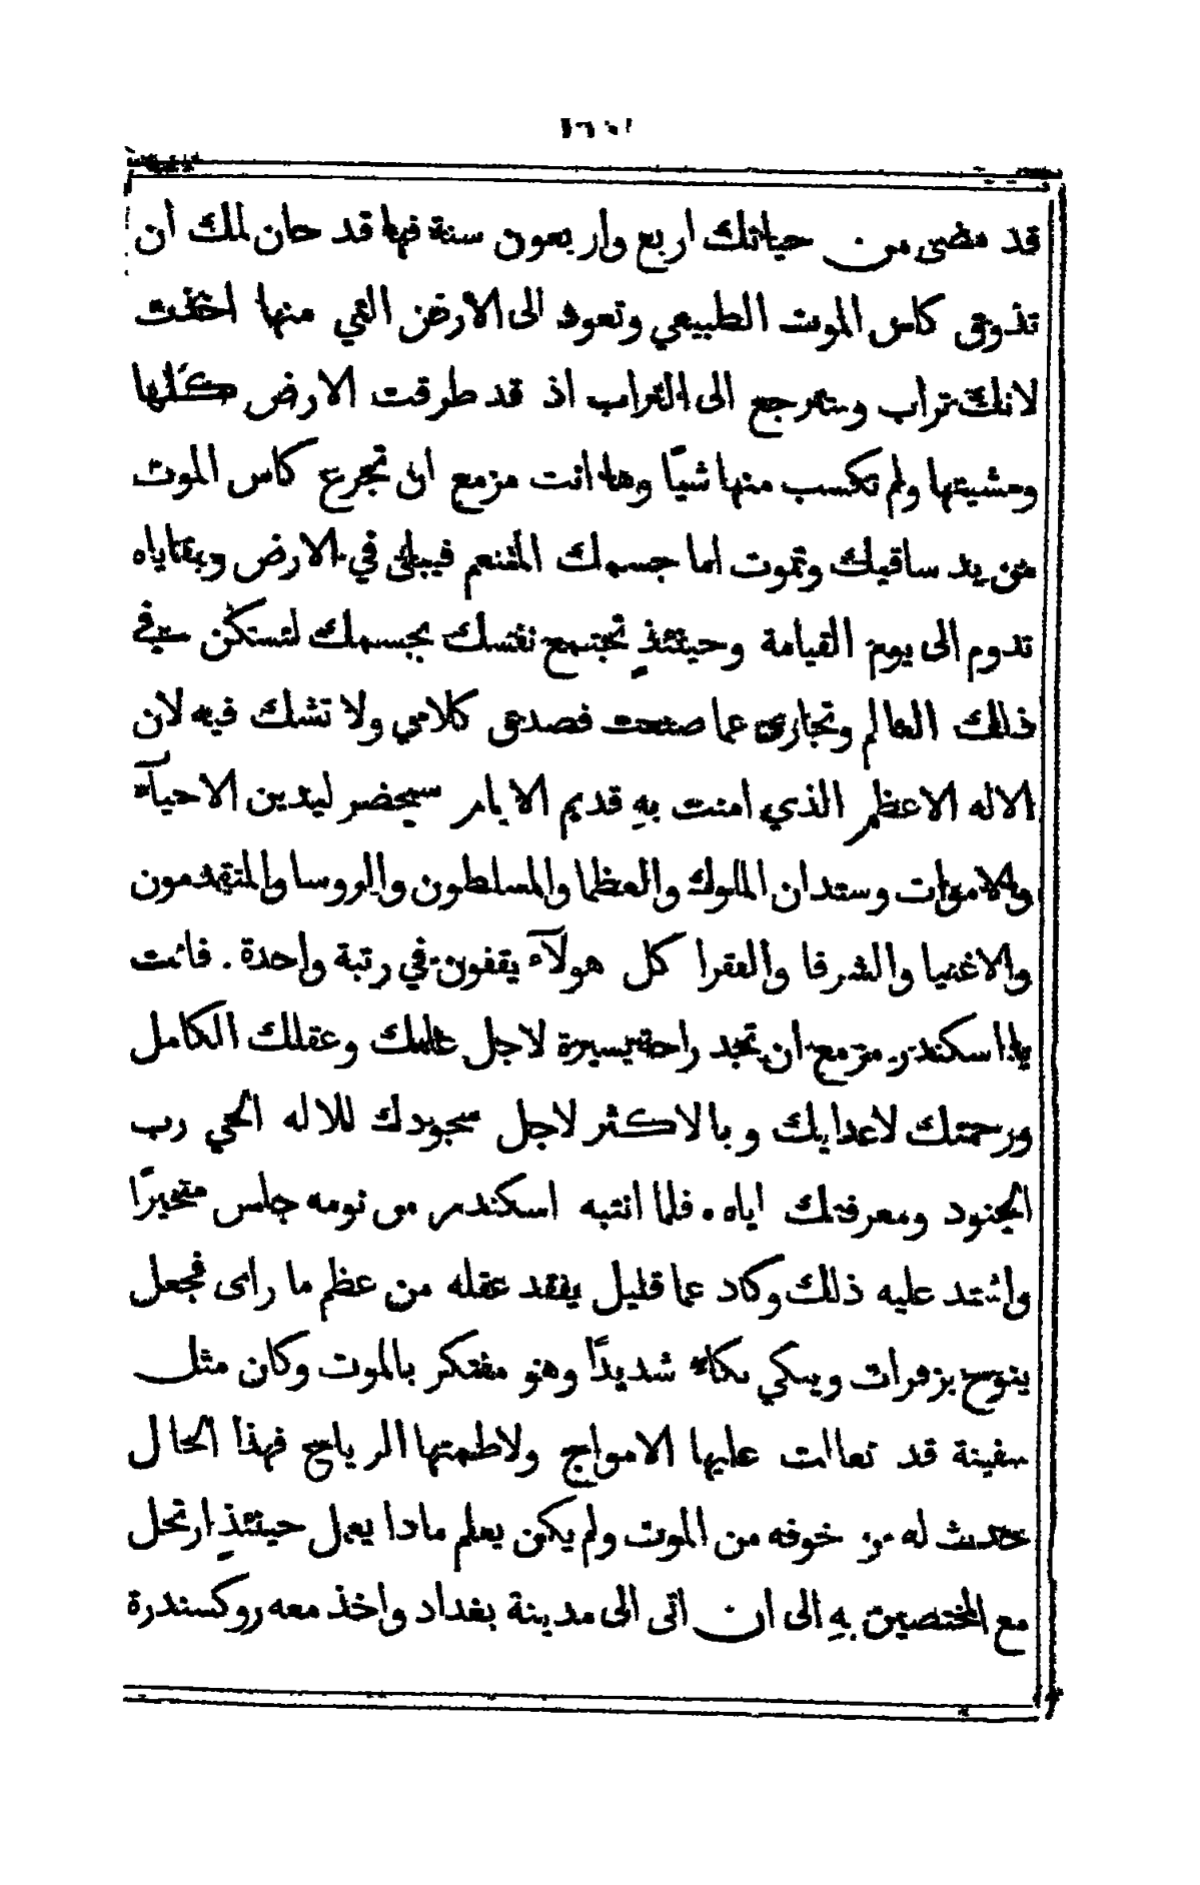 قد مضى من حياتك اربع واربعون سنة فها قد حان لك أن
تذوق كاس الموت الطبيعي وتعود الى الارض التي منها اخذت
لانك تراب وسترجع الى التراب اذ قد طرقت الارض كلها
ومشيتها ولم تكسب منها شيًا وها انت مزمع ان تجرع كاس الموت
من يد ساقيك وتموت اما جسمك المتنعم فيبلى في الارض وبقاياه
تدوم الى يوم القيامة وحينئذٍ تجتمع نفسك بجسمك لتسكن في
ذلك العالم وتجازى عما صنعت فصدق كلامي ولا تشك فيه لان
الاله الاعظم الذي امنت بهِ قديم الايام سيحضر ليدين الاحيآء
والاموات وستدان الملوك والعظما والمسلطون والروسا والمتقدمون
والاغنيا والشرفا والفقرا كل هولآء يقفون في رتبة واحدة . فانت
يا اسكندر مزمع ان تجد راحة يسيرة لاجل علمك وعقلك الكامل
ورحمتك لاعدايك وبالاكثر لاجل سجودك للاله الحي رب
الجنود ومعرفتك اياه . فلما انتبه اسكندر من نومه جلس متحيرًا
واشتد عليه ذلك وكاد عما قليل يفقد عقله من عظم ما راى فجعل
ينوح بزفرات ويبكي بكاء شديدًا وهو مفتكر بالموت وكان مثل
سفينة قد تعالت عليها الامواج ولاطمتها الرياح فهذا الحال
حدث له من خوفه من الموت ولم يكن يعلم ماذا يعمل حينئذٍ ارتحل
مع المختصين بهِ الى ان اتى الى مدينة بغداد واخذ معه روكسندرة